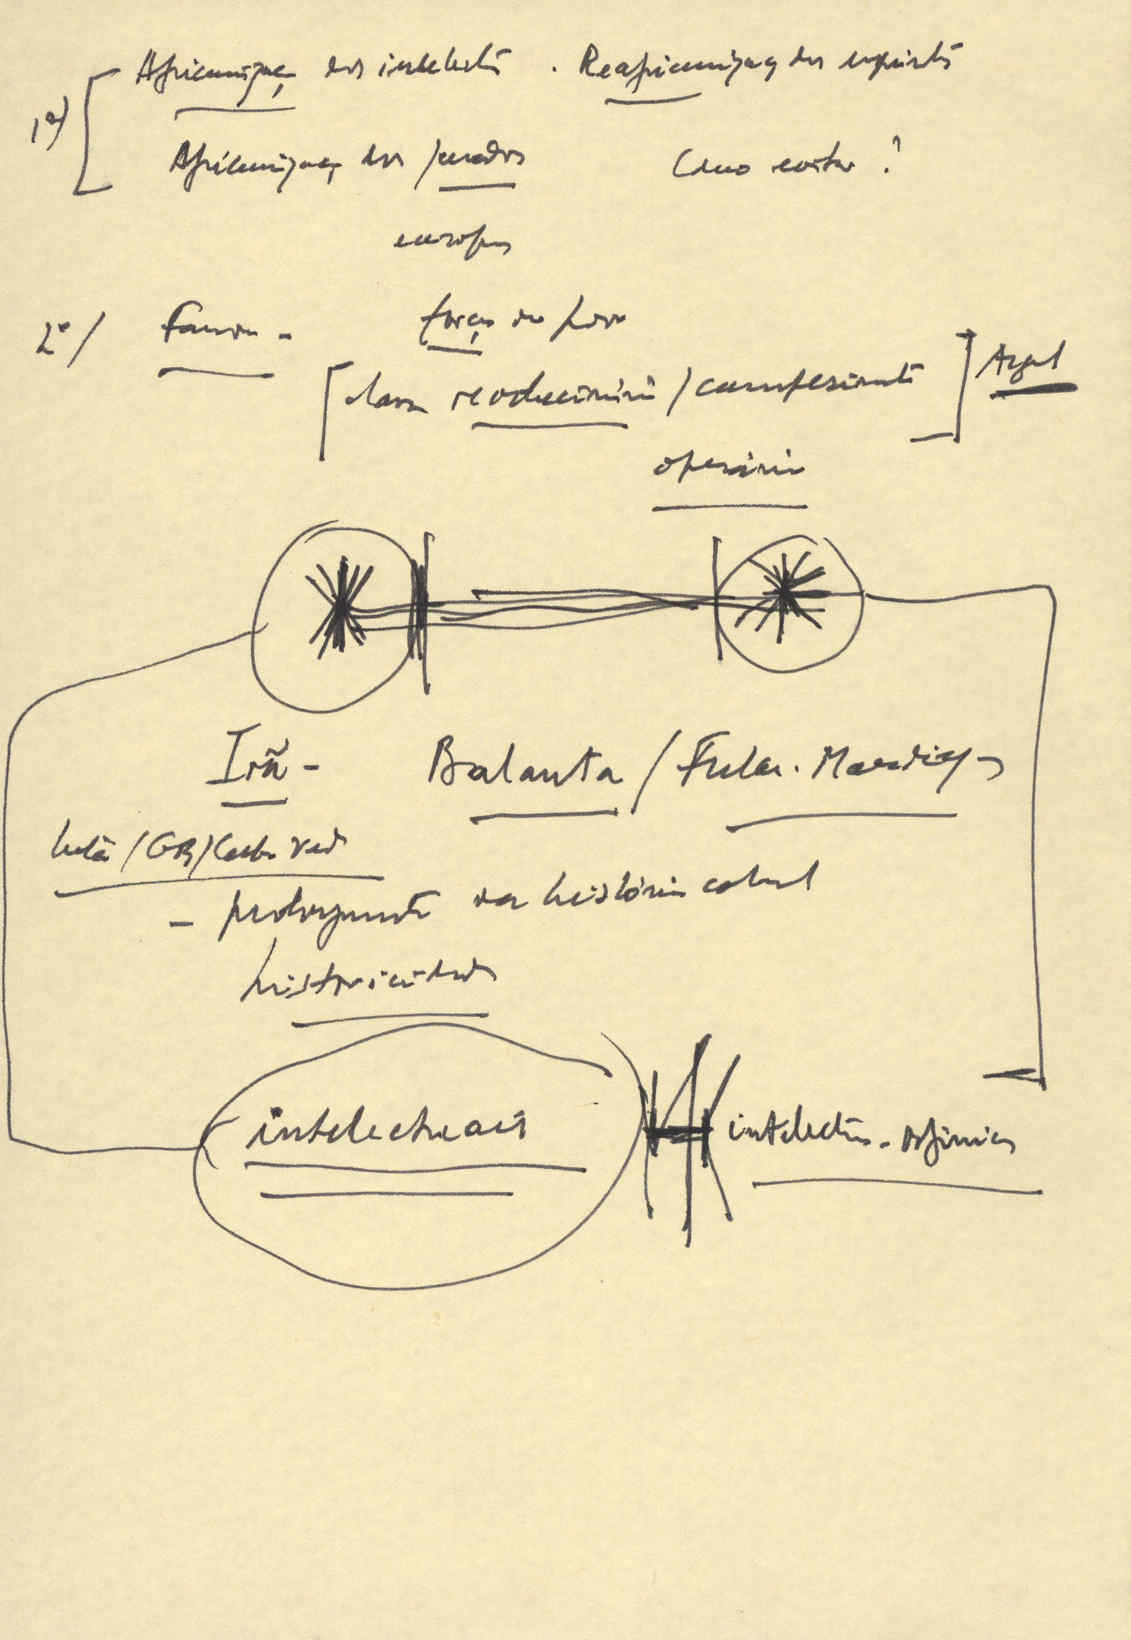 1º) Africanizaç dos intelectã . Reafricanizaç dos espíritõ
Africanizaç dos quadros Como evitar ?
europeus
2º / Fanon - força do povo
classe revolucionária / campesinato
operária
Irã - Balanta / Fula. Mandiga
luta / GB / Cabo Verde
- prolongamento da história colonial
historicidade
intelectuais intelectuais - orgânicos